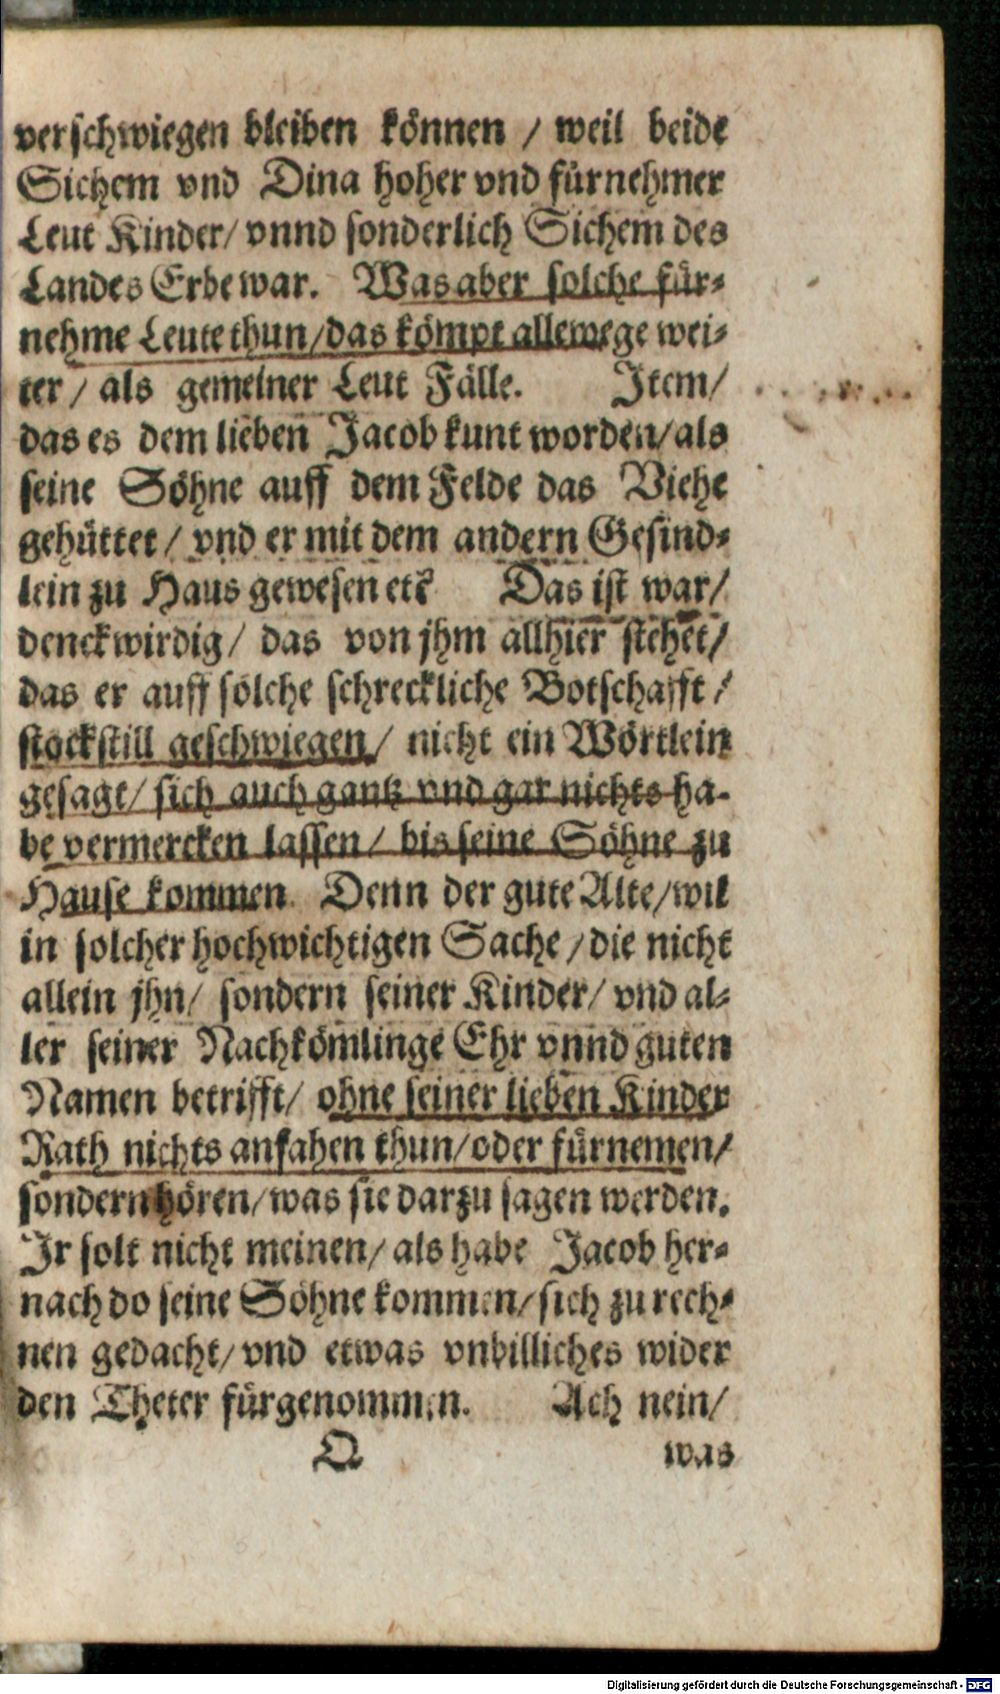 verschwiegen bleiben können / weil beide
Sichem vnd Dina hoher vnd fürnehmer
Leut Kinder/ vnnd sonderlich Sichem des
Landes Erbe war. Was aber solche für-
nehme Leute thun/das kömpt allewege wei-
ter / als gemeiner Leut Fälle. Item/
das es dem lieben Jacob kunt worden/als
seine Söhne auff dem Felde das Viehe
gehüttet / vnd er mit dem andern Gesind-
lein zu Haus gewesen etc Das ist war/
denckwirdig/ das von jhm allhier stehet/
das er auff solche schreckliche Botschafft /
stockstill geschwiegen/ nicht ein Wörtlein
gesagt/ sich auch gantz vnd gar nichts ha-
be vermercken lassen / bis seine Söhne zu
Hause kommen. Denn der gute Alte/wil
in solcher hochwichtigen Sache /die nicht
allein jhn/ sondern seiner Kinder/ vnd al-
ler seiner Nachkömlinge Ehr vnnd guten
Namen betrifft/ ohne seiner lieben Kinder
Rath nichts anfahen thun/oder fürnemen/
sondern hören/was sie darzu sagen werden.
Jr solt nicht meinen/ als habe Jacob her-
nach do seine Söhne kommen/sich zu rech-
nen gedacht/ vnd etwas vnbilliches wider
den Theter fürgenommen. Ach nein/
Q was
Digitalisierung gefördert durch die Deutsche Forschungsgemeinschaft - DFG